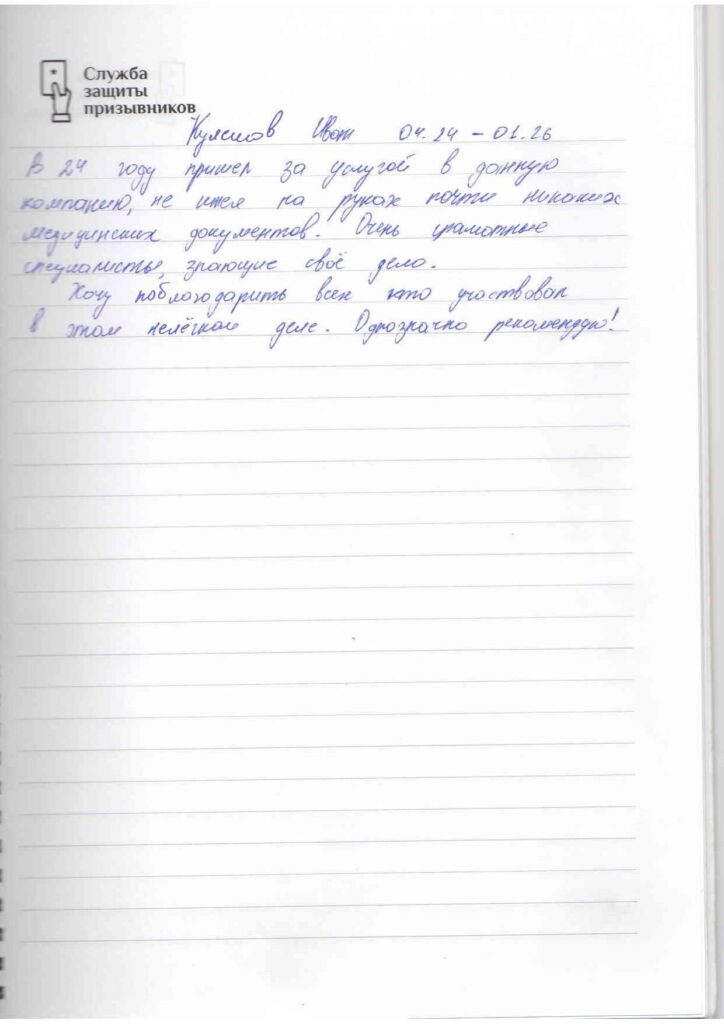 Служба
защиты
призывников
Иван 04.24 – 01.26
В 24 году пришел за услугой в данную
компанию, не имея на руках почти никаких
медицинских документов. Очень грамотные
специалисты, знающие своё дело.
Хочу поблагодарить всех кто участвовал
в этом нелёгком деле. Однозначно рекомендую!